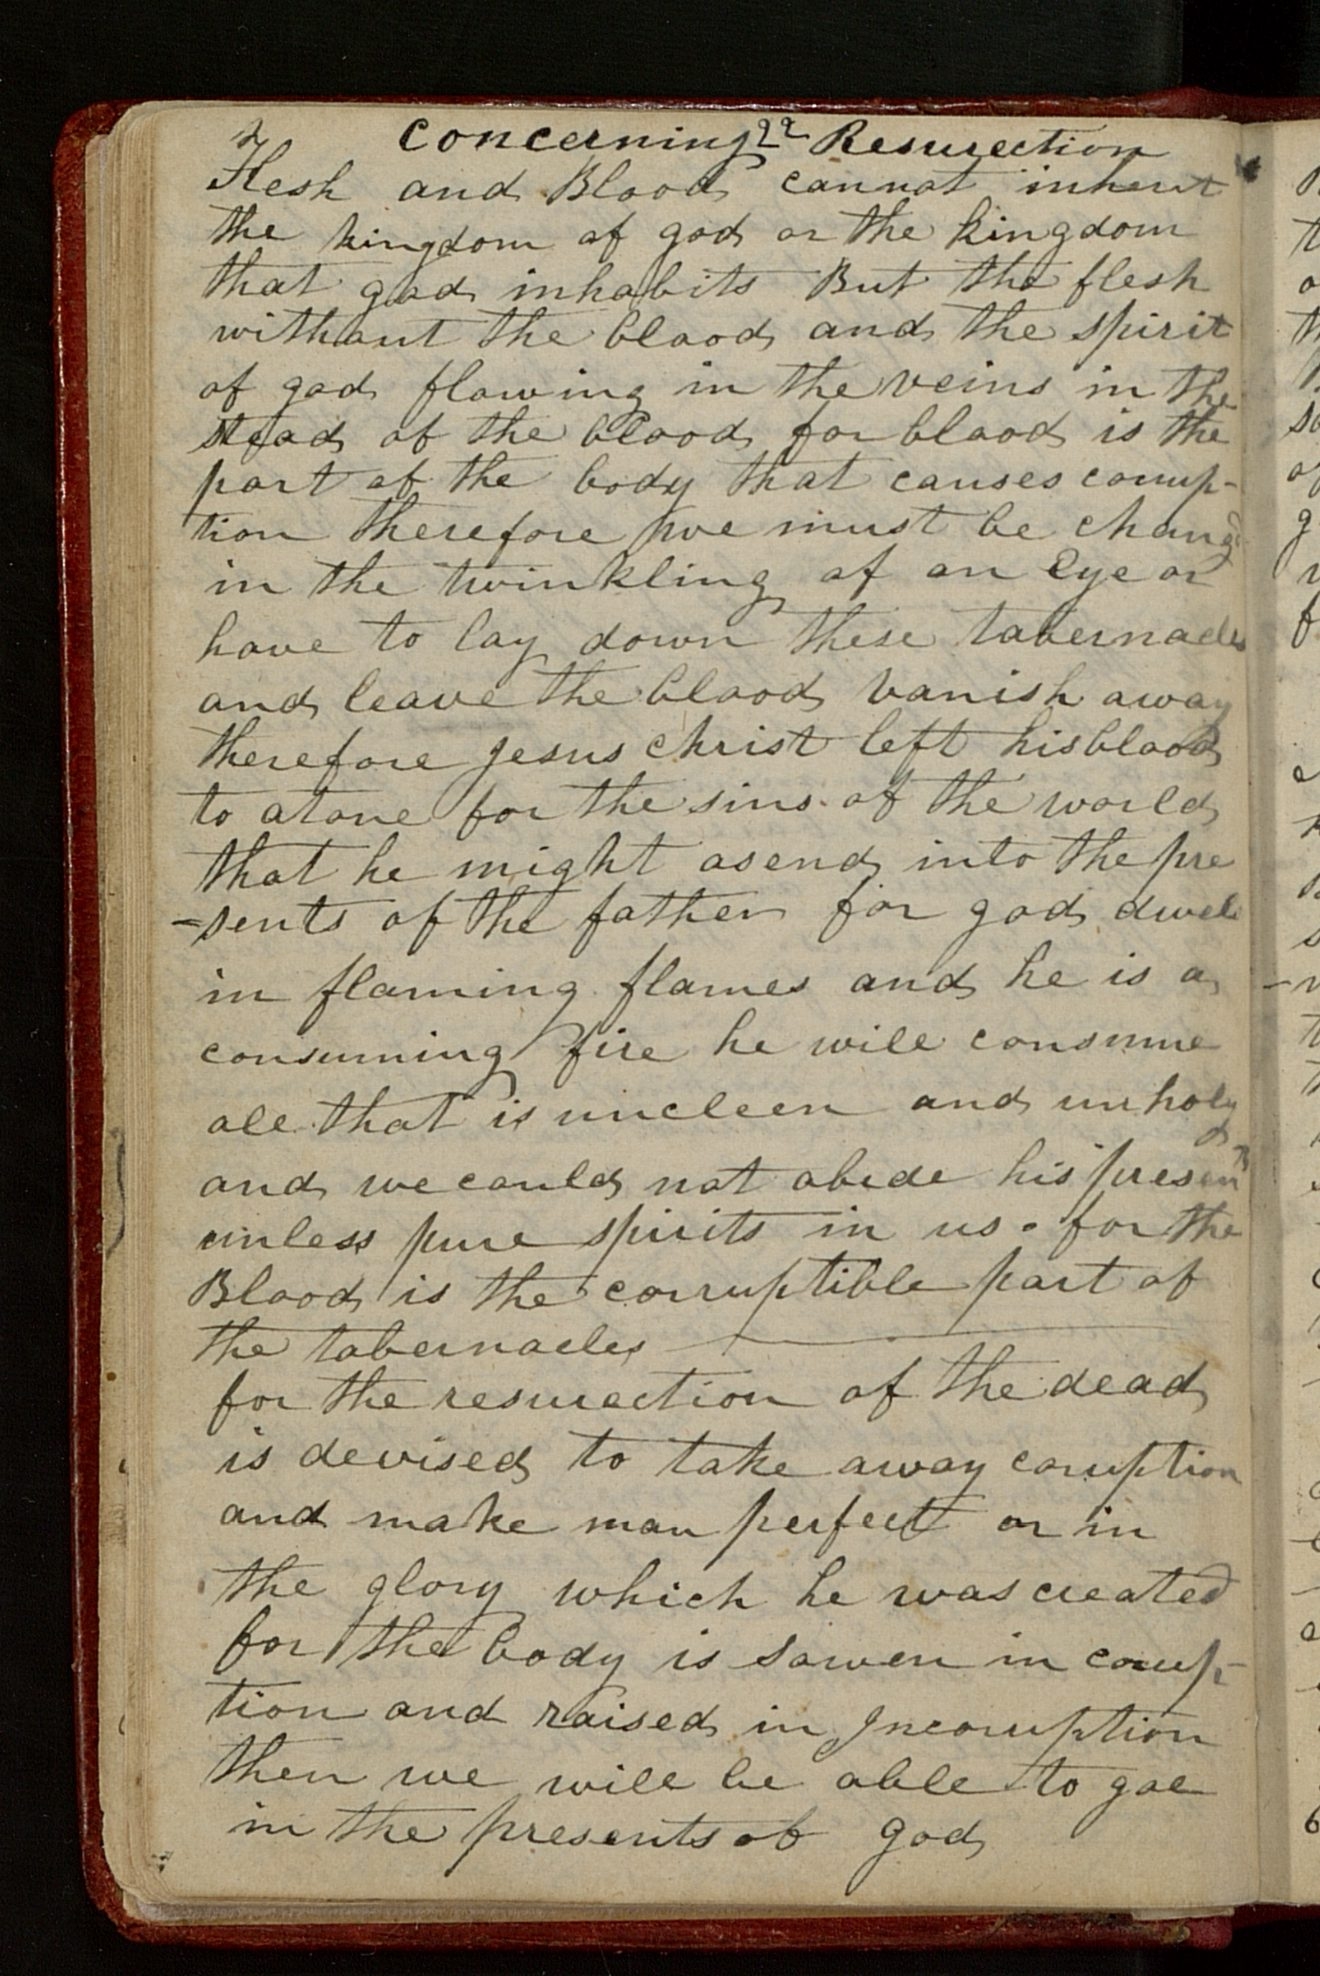 2 Concerning 22 Resurection
Flesh and Blood cannot inherit
the kingdom of god or the kingdom
that god inhabits But the flesh
without the blood and the spirit
of god flowing in the veins in the
stead of the blood for blood is the
part of the body that causes corrup-
tion therefore we must be changd
in the twinkling of an Eye or
have to lay down these tabernacles
and leave the blood vanish away
therefore Jesus christ left his blood
to atone for the sins of the world
that he might asend into the pre
-sents of the father for god dwels
in flaming flames and he is a
consuming fire he will consume
all that is uncleen and unholy
and we could not abide his presents
unless pure spirits in us. for the
Blood is the corruptible part of
the tabernacles
for the resurection of the dead
is devised to take away coruption
and make man perfect or in
the glory which he was created
for the body is sowen in corrup-
tion and raised in Incoruption
then we will be able to goe
in the presents of god